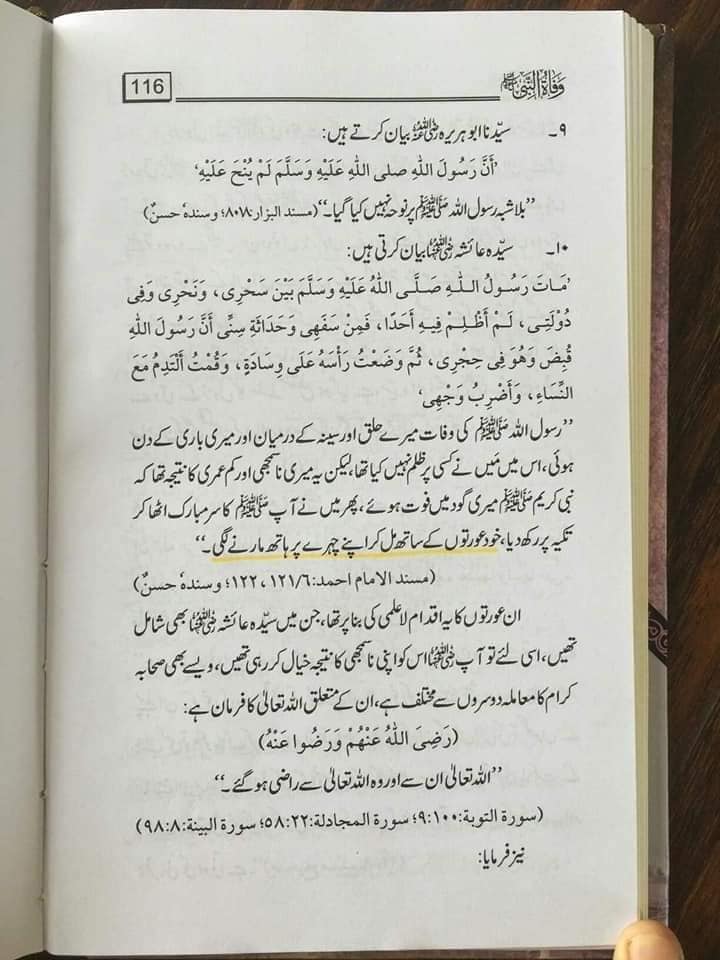 وَفَاةُ النَّبِی ﷺ 116
۹۔ سیّدنا ابو ہریرہ رضی اللہ عنہ بیان کرتے ہیں:
'أَنَّ رَسُولَ اللّٰهِ صلى الله عَلَيْهِ وَسَلَّمَ لَمْ يُنَحْ عَلَيْهِ'
''بلاشبہ رسول اللہ ﷺ پر نوحہ نہیں کیا گیا۔'' (مسند البزار: ۸۰۷۱؛ وسندہٗ حسنٌ)
۱۰۔ سیّدہ عائشہ رضی اللہ عنہا بیان کرتی ہیں:
'مَاتَ رَسُولُ اللّٰهِ صَلَّى اللّٰهُ عَلَيْهِ وَسَلَّمَ بَيْنَ سَحْرِى، وَنَحْرِى وَفِى
دُوْلَتِى، لَمْ أَظْلِمْ فِيهِ أَحَدًا، فَمِنْ سَفَهِى وَحَدَاثَةِ سِنِّى أَنَّ رَسُولَ اللّٰهِ
قُبِضَ وَهُوَ فِى حِجْرِى، ثُمَّ وَضَعْتُ رَأْسَهُ عَلَى وِسَادَةٍ، وَقُمْتُ أَلْتَدِمُ مَعَ
النِّسَاءِ، وَأَضْرِبُ وَجْهِى'
''رسول اللہ ﷺ کی وفات میرے حلق اور سینہ کے درمیان اور میری باری کے دن
ہوئی، اس میں مَیں نے کسی پر ظلم نہیں کیا تھا، لیکن یہ میری ناسمجھی اور کم عمری کا نتیجہ تھا کہ
نبی کریم ﷺ میری گود میں فوت ہوئے، پھر میں نے آپ ﷺ کا سر مبارک اٹھا کر
تکیہ پر رکھ دیا، خود عورتوں کے ساتھ مل کر اپنے چہرے پر ہاتھ مارنے لگی۔''
(مسند الامام احمد: ۱۲۱/۶، ۱۲۲؛ وسندہٗ حسنٌ)
ان عورتوں کا یہ اقدام لاعلمی کی بنا پر تھا، جن میں سیّدہ عائشہ رضی اللہ عنہا بھی شامل
تھیں، اسی لئے تو آپ رضی اللہ عنہا اس کو اپنی ناسمجھی کا نتیجہ خیال کر رہی تھیں، ویسے بھی صحابہ
کرام کا معاملہ دوسروں سے مختلف ہے، ان کے متعلق اللہ تعالیٰ کا فرمان ہے:
(رَضِىَ اللّٰهُ عَنْهُمْ وَرَضُوا عَنْهُ)
''اللہ تعالیٰ ان سے اور وہ اللہ تعالیٰ سے راضی ہو گئے۔''
(سورة التوبة: ۹:۱۰۰؛ سورة المجادلة: ۵۸:۲۲؛ سورة البينة: ۹۸:۸)
نیز فرمایا: